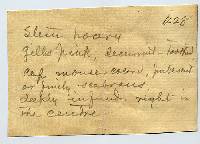 628
Stem hoary
Gills pink, decurrent - toothed
Cap mouse colored, pubescent
or finely scabrous
deeply infund. right in
the centre